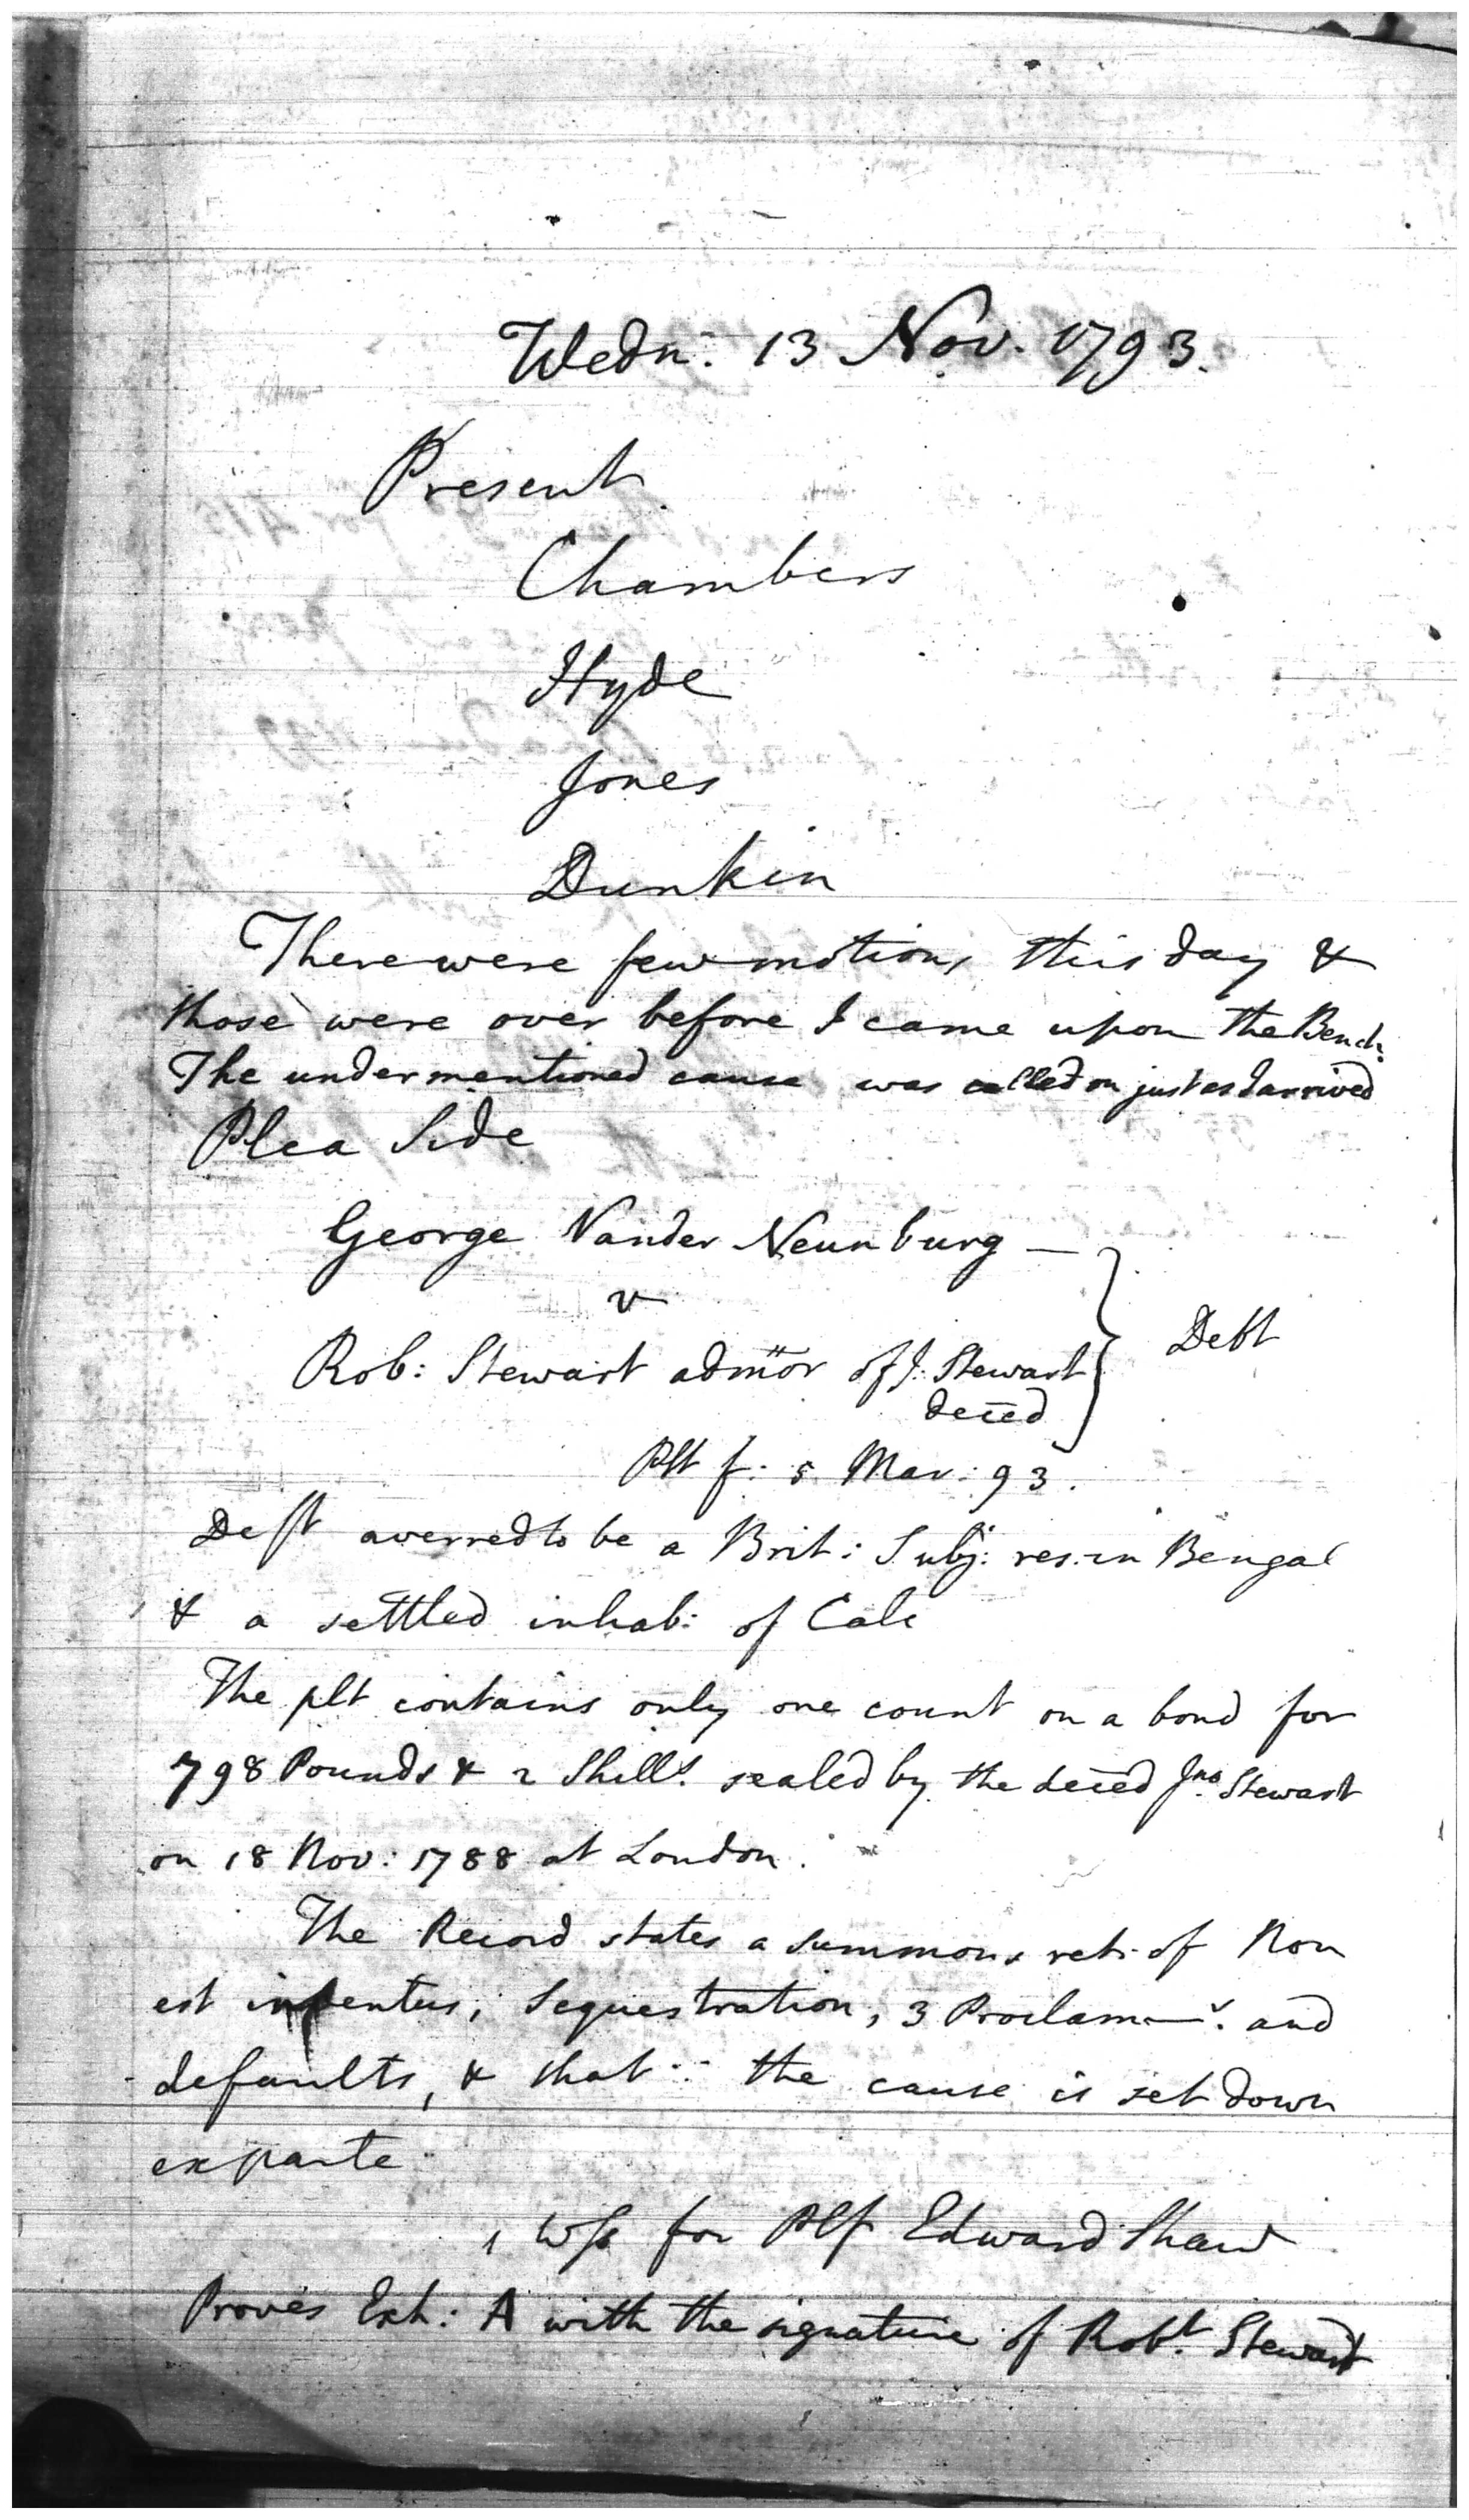 Wedn: 13 Nov. 1793.
Present
Chambers
Hyde
Jones
Dunkin
There were few motions this day &
those were over before I came upon the Bench.
The undermentioned cause was called on just as I arrived
Plea Side
George Vander Neunburg —
v
Rob: Stewart admor of J. Stewart
deced
Debt
Plt f: 5 Mar: 93.
Deft averred to be a Brit: Subj: res: in Bengal
& a settled inhab: of Calc
The plt contains only one count on a bond for
798 Pounds & 2 Shills. sealed by the deced Jno. Stewart
on 18 Nov: 1788 at London.
The Record states a summons ret: of Non
est inventus; Sequestration, 3 Proclam—s. and
defaults, & that the cause is set down
exparte
1 Wss for Plf Edward Shaw
Proves Exh: A with the signature of Robt. Stewart